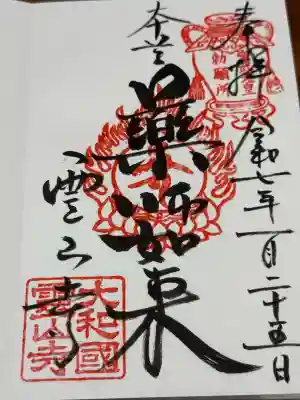 奉拝 令和七年一月二十五日
勅願所
本尊
薬師如来
霊山寺
大和國
霊山寺